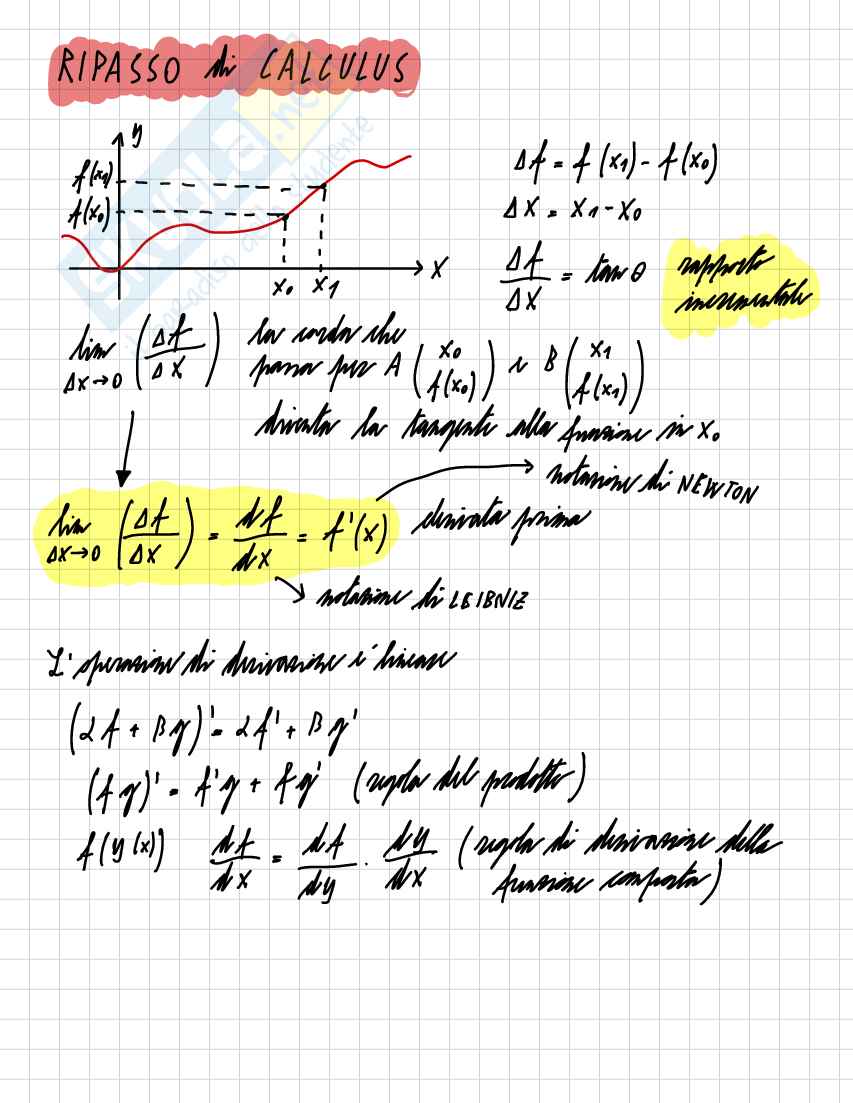 RIPASSO di CALCULUS
y
f(x1)
f(x0)
x0 x1
x
Δf = f(x1) - f(x0)
Δx = x1 - x0
Δf/Δx = tan θ rapporto incrementale
lim Δx→0 (Δf/Δx) la corda che
passa per A (x0 f(x0)) e B (x1 f(x1))
diventa la tangente alla funzione in x0
notazione di NEWTON
lim Δx→0 (Δf/Δx) = df/dx = f'(x) derivata prima
notazione di LEIBNIZ
L'operazione di derivazione è lineare
(αf + βg)' = αf' + βg'
(fg)' = f'g + fg' (regola del prodotto)
f(y(x)) df/dx = df/dy · dy/dx (regola di derivazione della
funzione composta)
SKUOLA.net